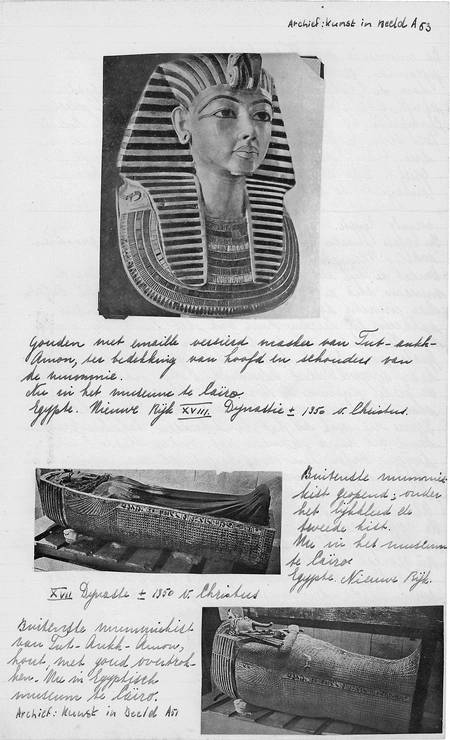 Archief: Kunst in Beeld A 53
Gouden met emaille versierd masker van Tut-ankh-
Amon, ter bedekking van hoofd en schouders van
de mummie.
Nu in het museum te Caïro.
Egypte. Nieuwe Rijk XVIII. Dynastie ± 1350 v. Christus.
Buitenste mummie-
kist geopend; onder
het lijkkleed de
tweede kist.
Nu in het museum
te Caïro
Egypte. Nieuwe Rijk.
XVII Dynastie ± 1350 v. Christus
Buitenste mummiekist
van Tut-Ankh-Amon,
hout, met goud overtrok-
ken. Nu in Egyptisch
museum te Caïro.
Archief: Kunst in Beeld A51